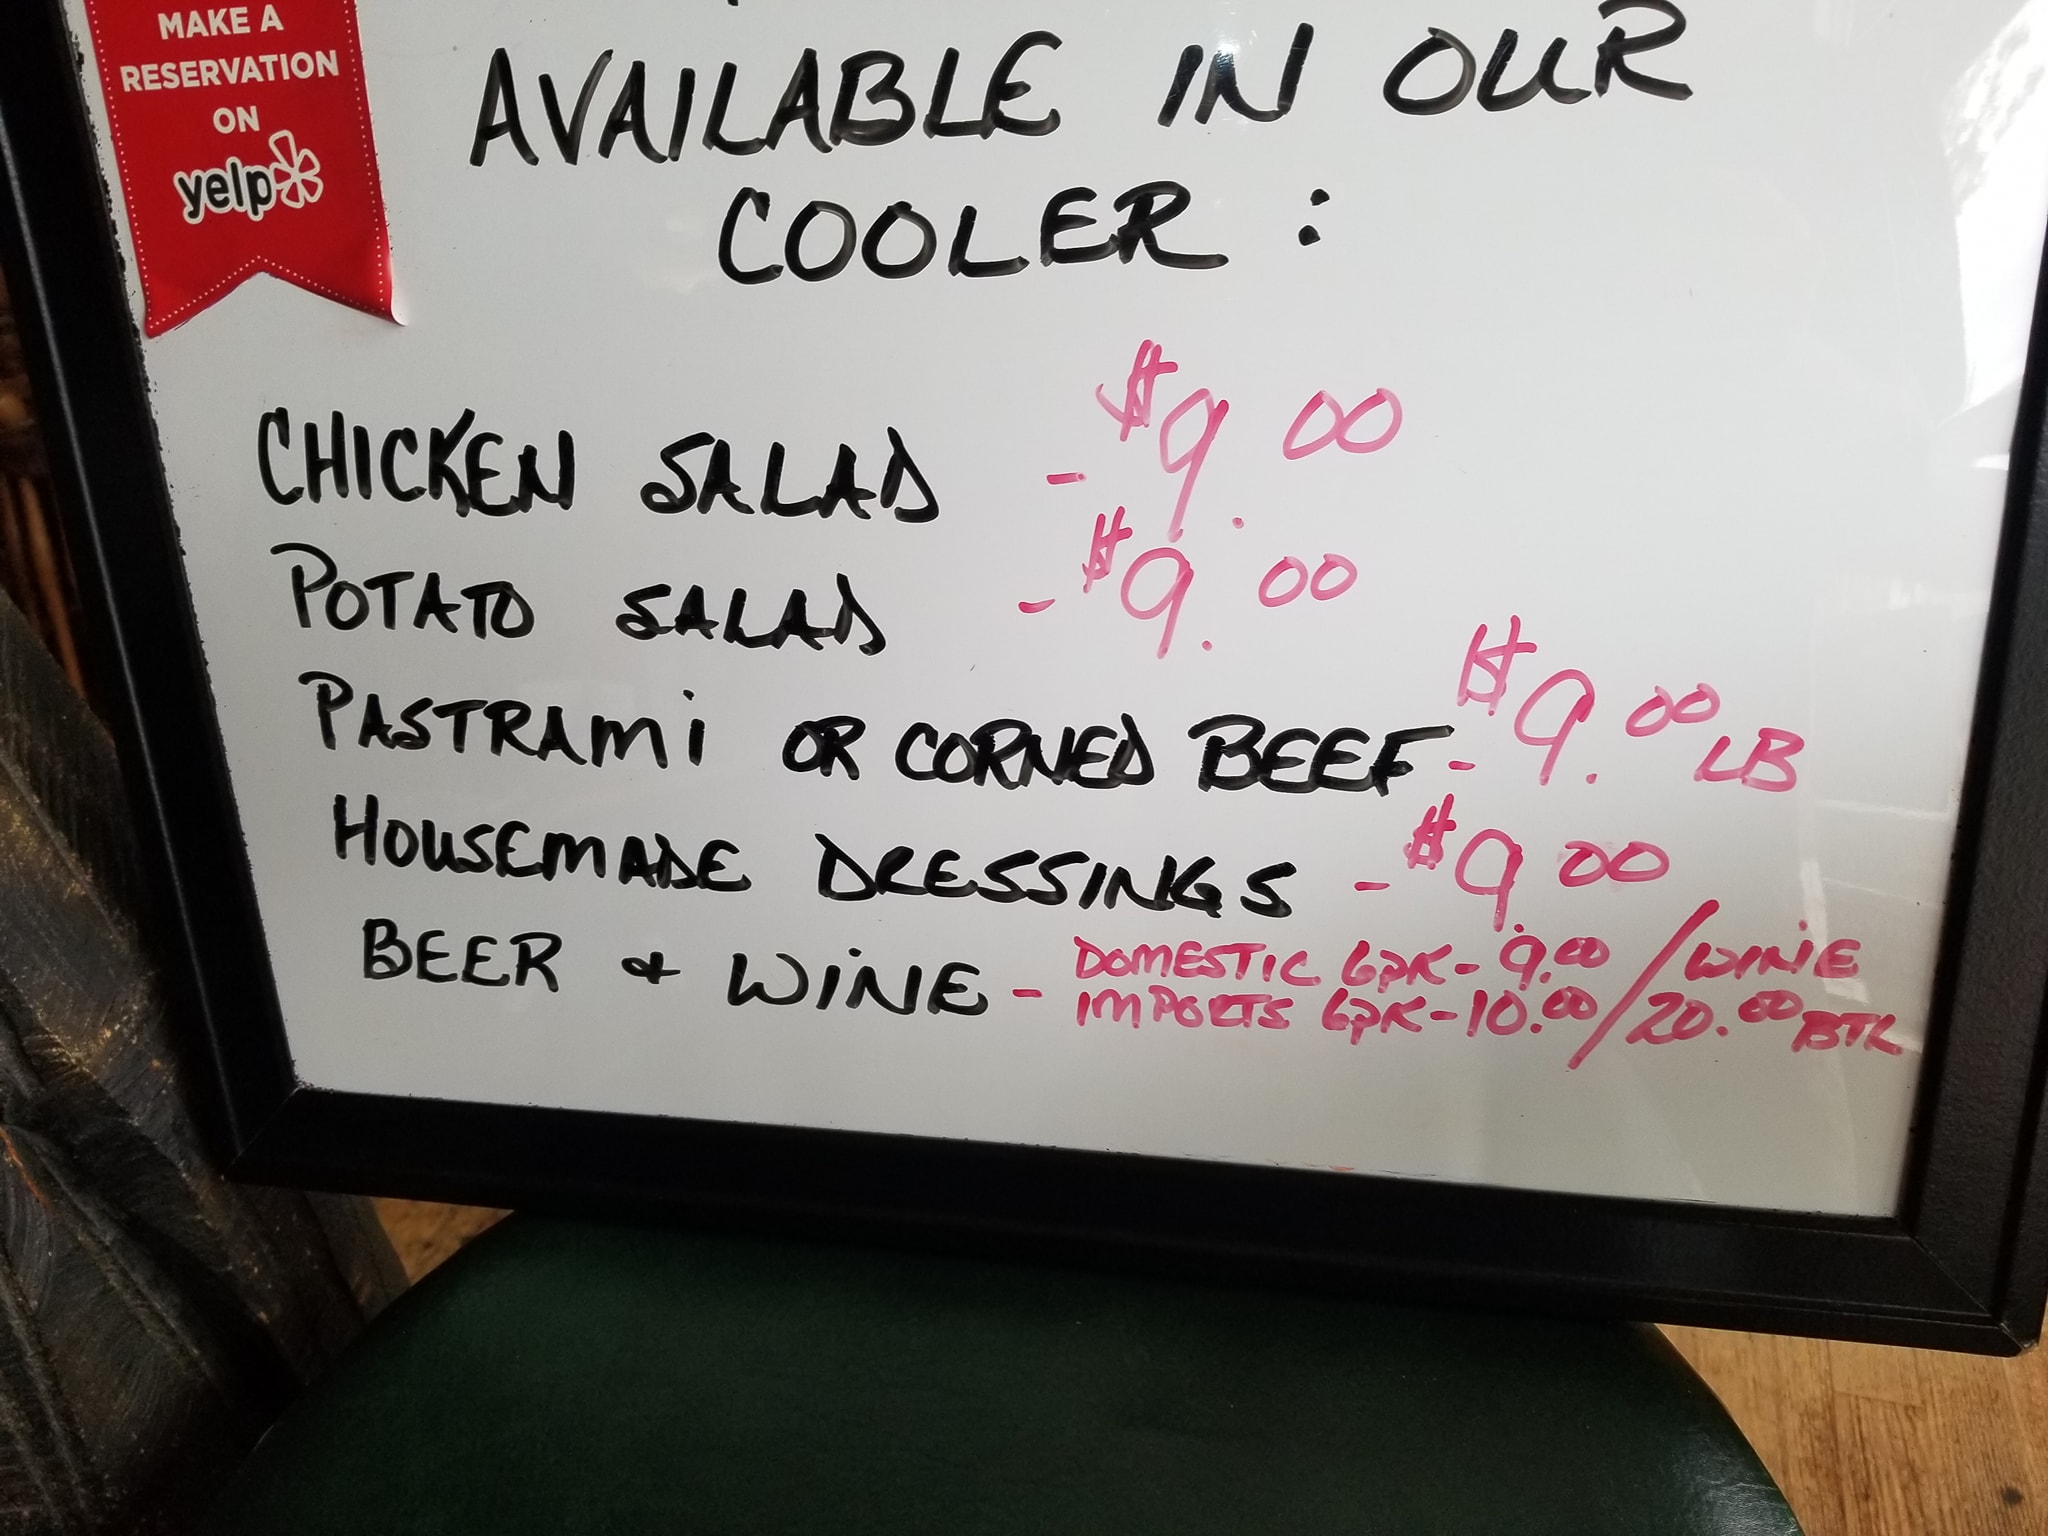 MAKE A
RESERVATION
ON
yelp
AVAILABLE IN OUR
COOLER :
CHICKEN SALAD - $9.00
POTATO SALAD - $9.00
PASTRAMi OR CORNED BEEF - $9.00 LB
HOUSEMADE DRESSINGS - $9.00
BEER & WINE - DOMESTIC 6PK - 9.00 / WINE
IMPORTS 6PK - 10.00 / 20.00 BTL